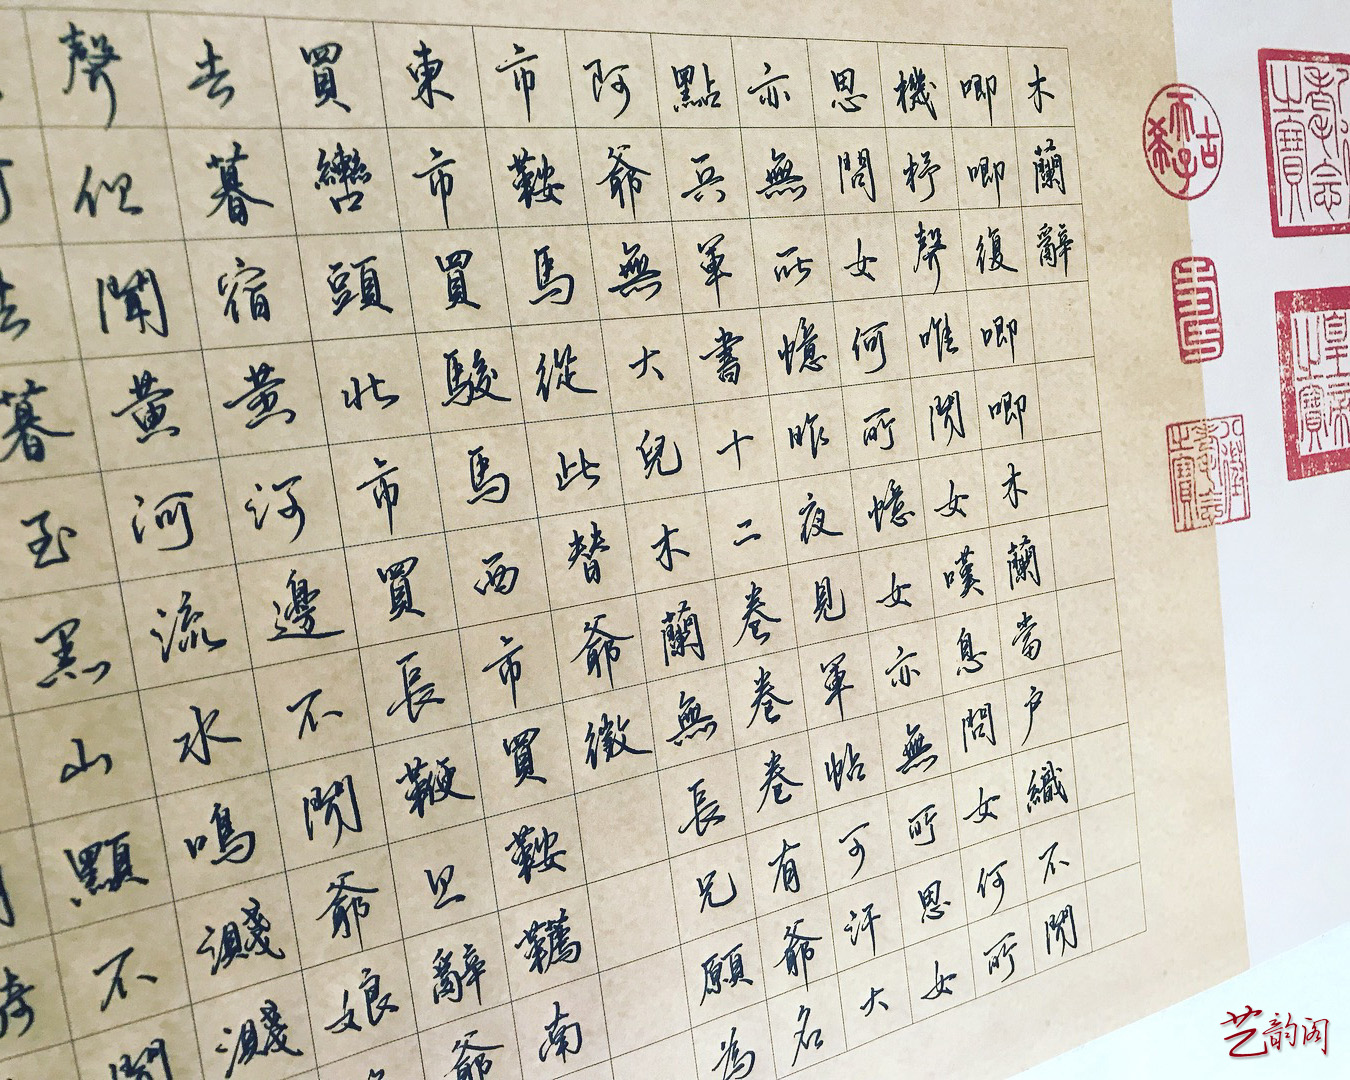 木蘭辭
唧唧復唧唧木蘭當户織不聞
機杼聲唯聞女嘆息問女何所
思問女何所憶女亦無所思女
亦無所憶昨夜見軍帖可汗大
點兵軍書十二卷卷卷有爺名
阿爺無大兒木蘭無長兄願為
市鞍馬從此替爺徵
東市買駿馬西市買鞍韉南
買轡頭北市買長鞭旦辭爺
去暮宿黄河邊不聞爺娘
聲但聞黄河流水鳴濺濺
去暮至黑山顛不聞
古希天子
八徵耄念之寶
皇帝之寶
艺韵阁